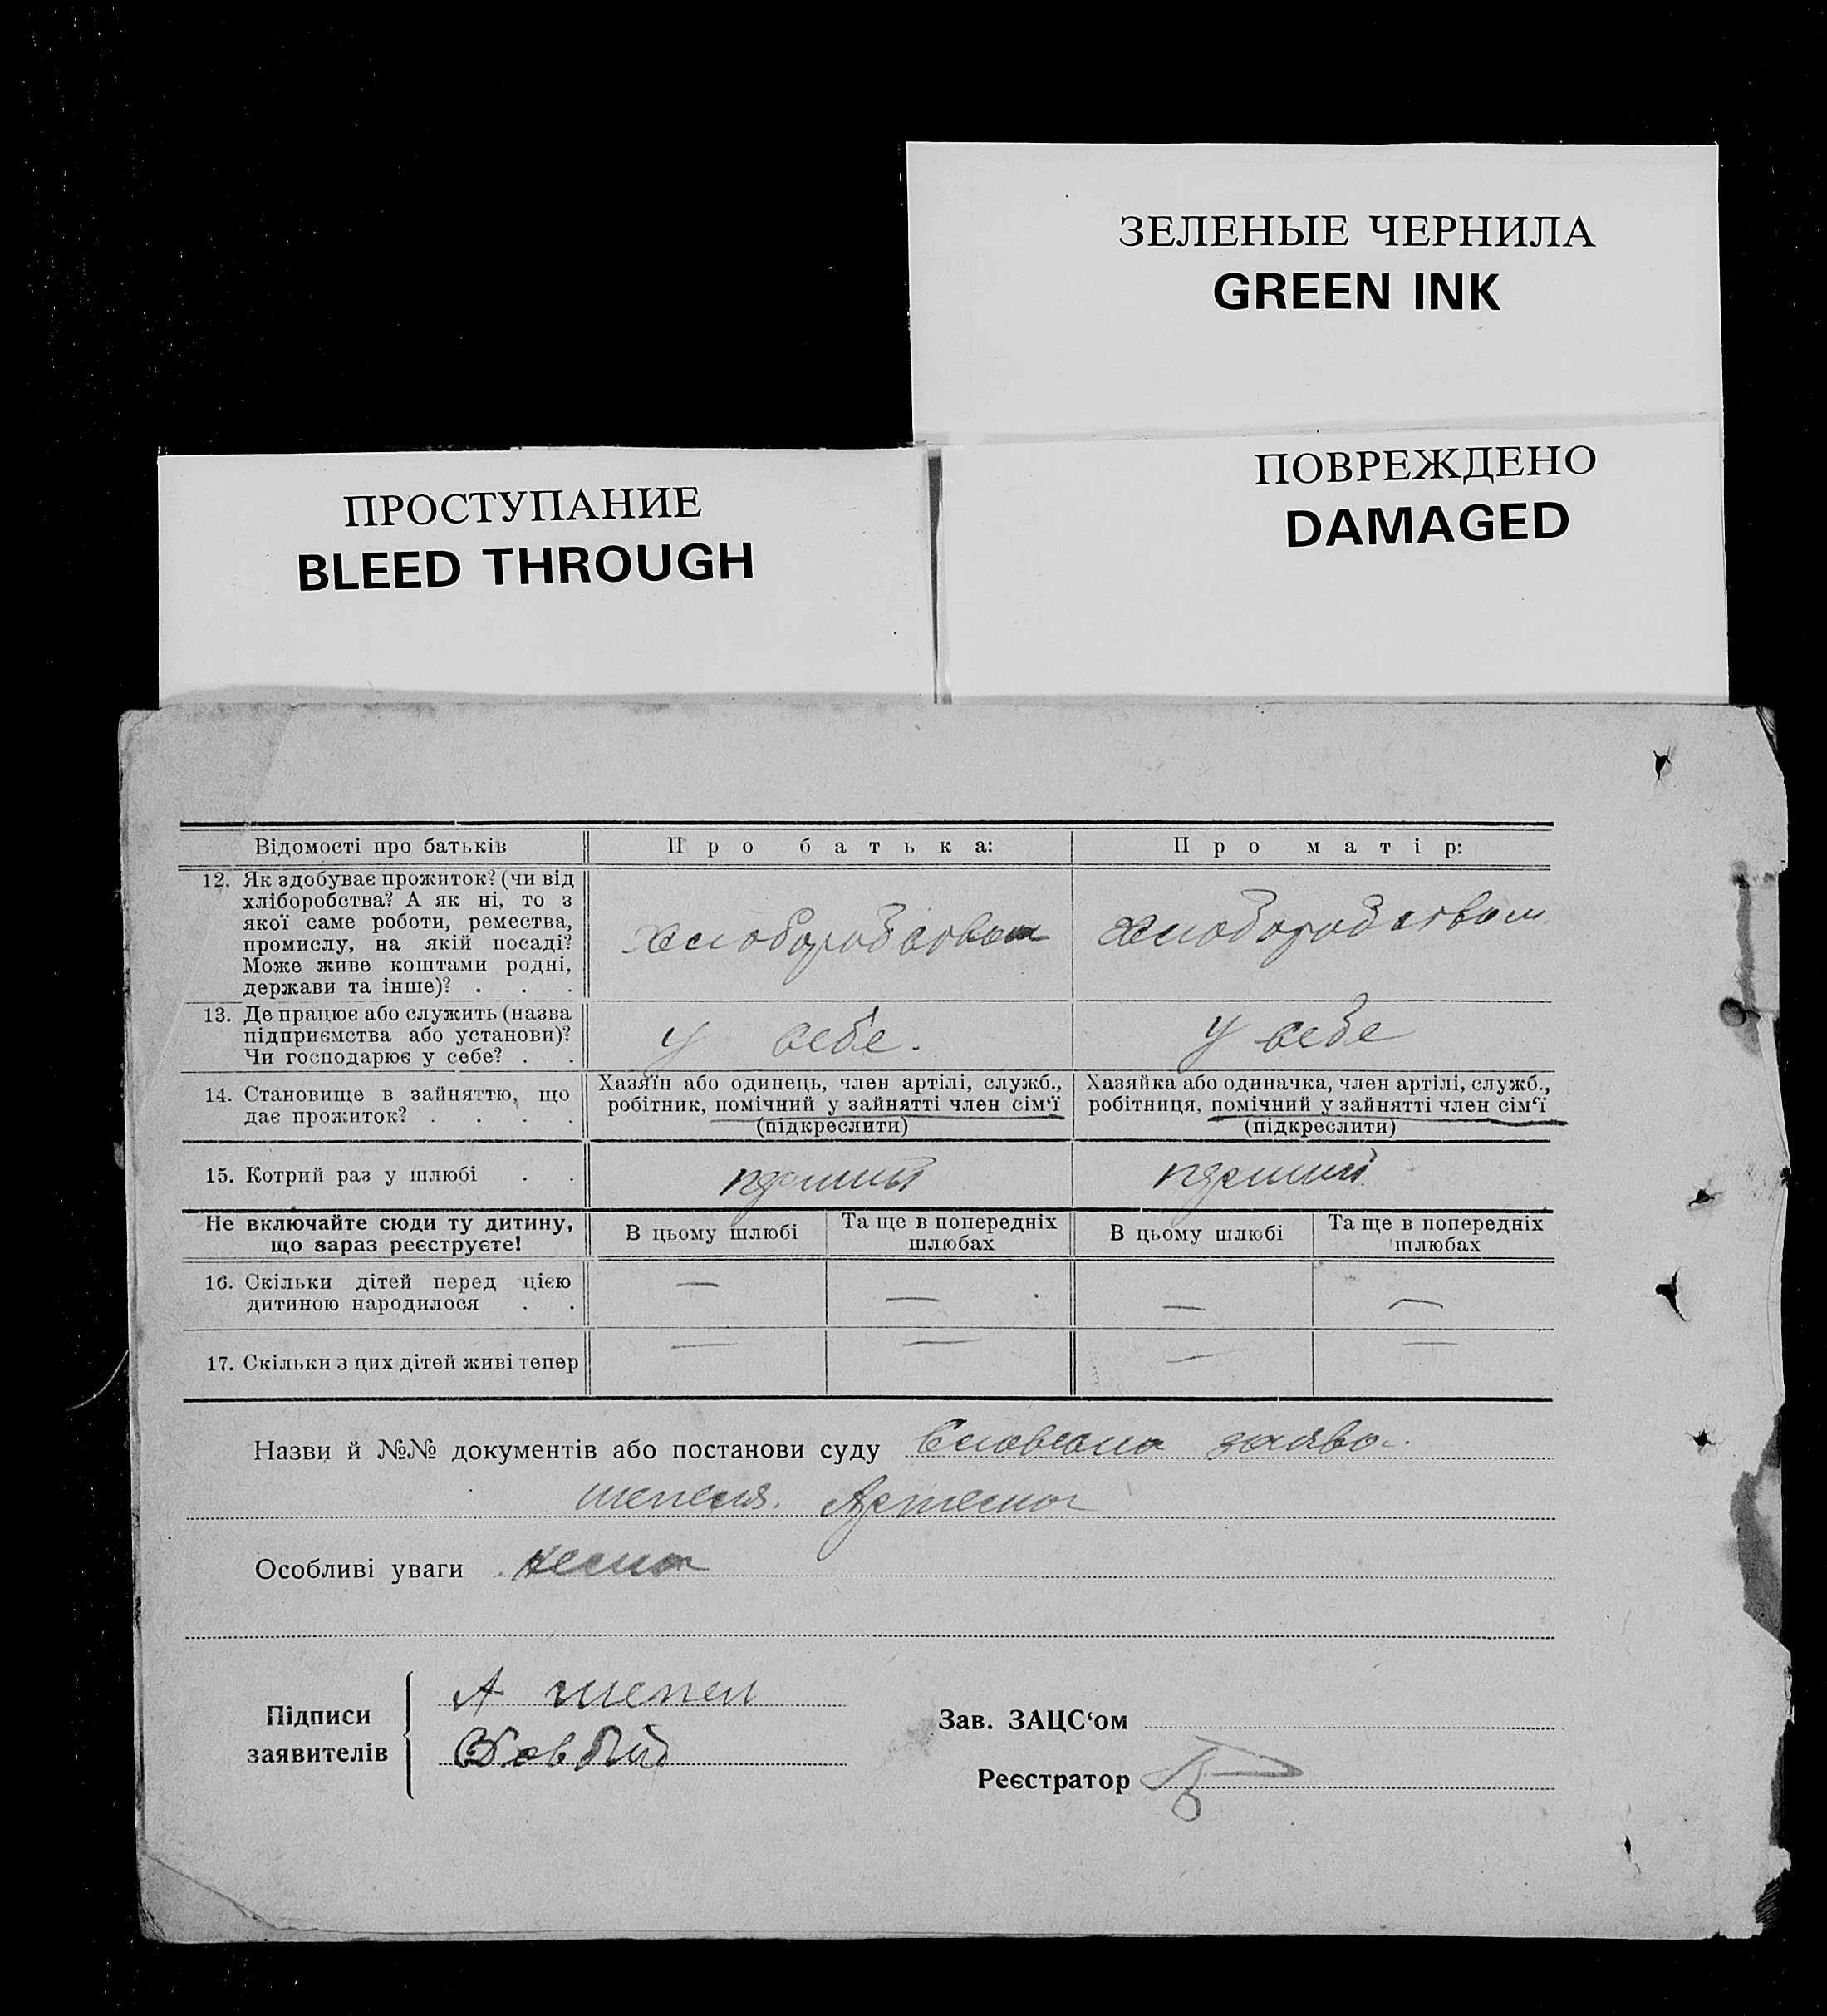 ЗЕЛЕНЫЕ ЧЕРНИЛА
GREEN INK
ПОВРЕЖДЕНО
DAMAGED
ПРОСТУПАНИЕ
BLEED THROUGH
Відомості про батьків
Про батька:
Про матір:
12. Як здобуває прожиток? (чи від
хліборобства? А як ні, то з
якої саме роботи, ремества,
промислу, на якій посаді?
Може живе коштами родні,
держави та інше)? . . .
хліоборобством
хліоборобством
13. Де працює або служить (назва
підприємства або установи)?
Чи господарює у себе? . .
у себе.
у себе
14. Становище в зайняттю, що
дає прожиток? . . . .
Хазяїн або одинець, член артілі, служб.,
робітник, помічний у зайнятті член сім‘ї
(підкреслити)
Хазяйка або одиначка, член артілі, служб.,
робітниця, помічний у зайнятті член сім‘ї
(підкреслити)
15. Котрий раз у шлюбі . .
перший
перший
Не включайте сюди ту дитину,
що зараз реєструєте!
В цьому шлюбі
Та ще в попередніх
шлюбах
В цьому шлюбі
Та ще в попередніх
шлюбах
16. Скільки дітей перед цією
дитиною народилося . .
— — — —
17. Скільки з цих дітей живі тепер
— — — —
Назви й №№ документів або постанови суду Словесна заява
шепеля. Артема
Особливі уваги нема
Підписи
заявителів
А шепел
Зав. ЗАЦС‘ом
Реєстратор